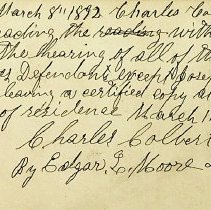 March 8th 1892 Charles Co
reading the reading with
the hearing of all of th
Defendants except Jose
leaving a certified copy a
of residence March 1
Charles Colbert
By Edgar L. Moore